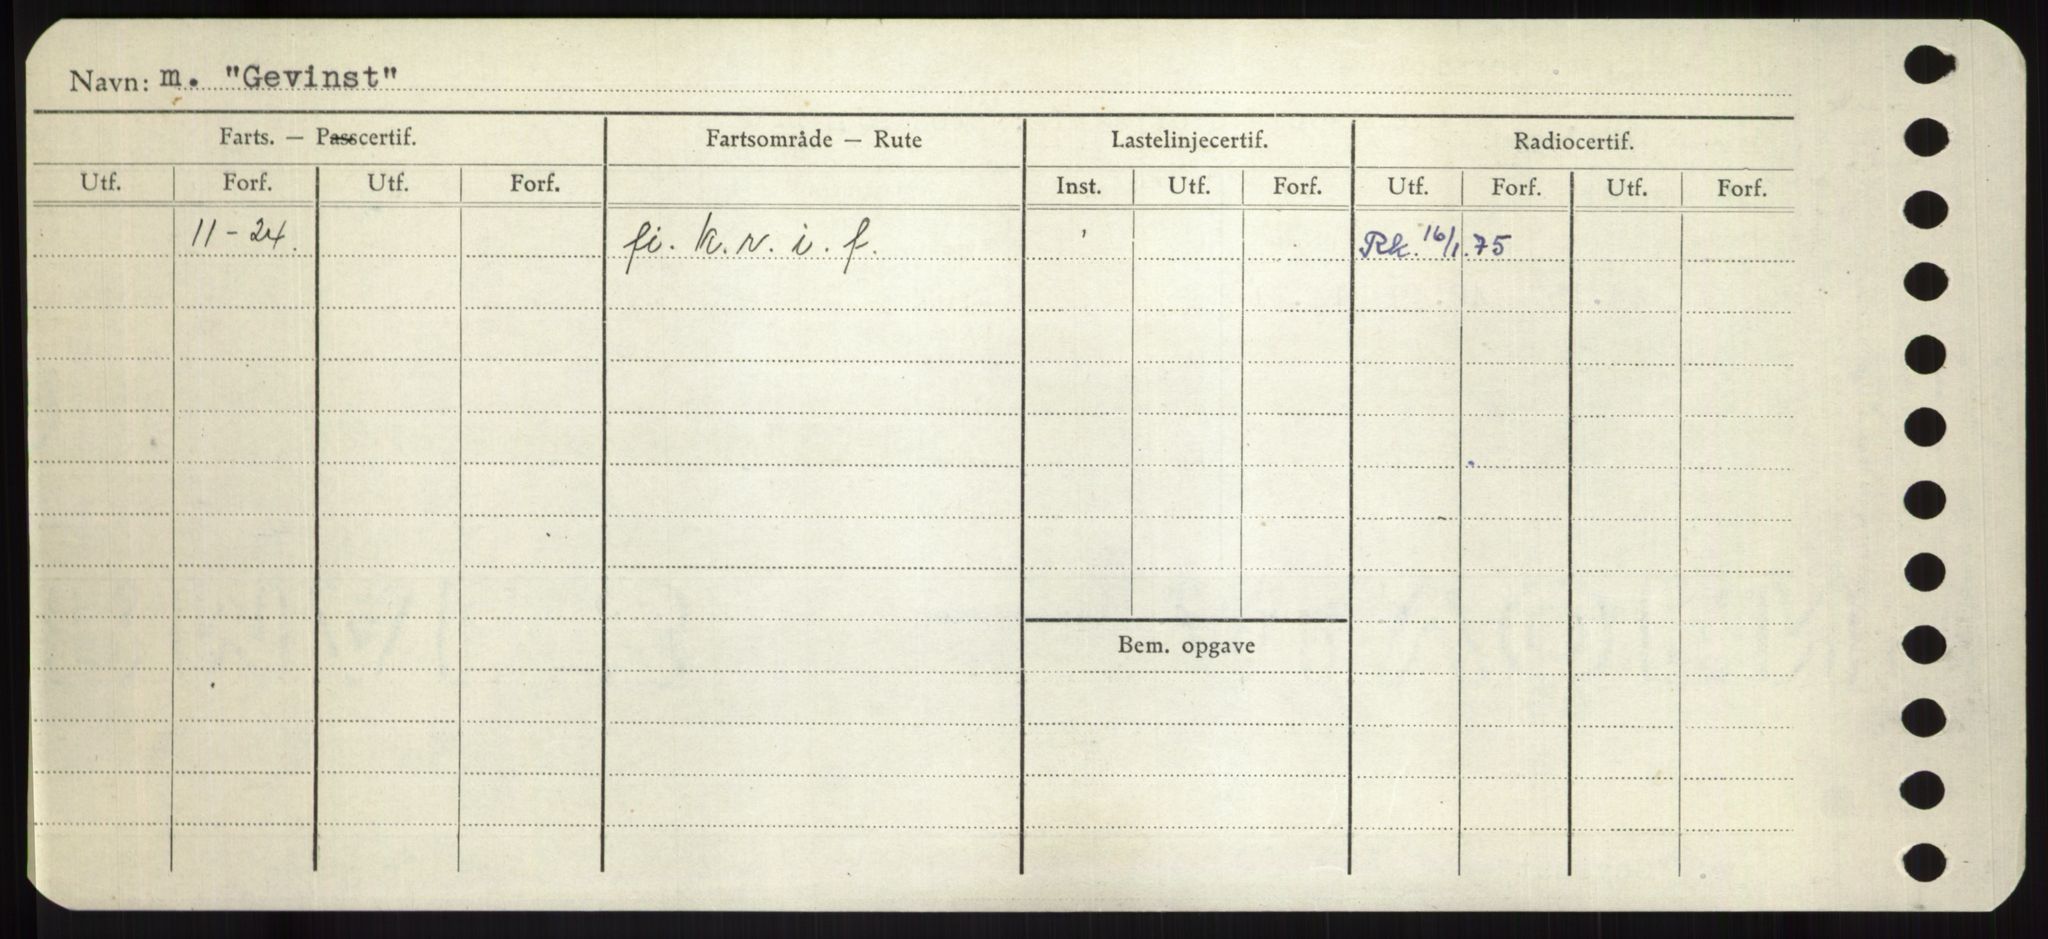 Navn: m. "Gevinst"
Farts. — Passcertif. Fartsområde — Rute Lastelinjecertif. Radiocertif.
Utf. Forf. Utf. Forf. Inst. Utf. Forf. Utf. Forf. Utf. Forf.
11-24. fi. k. v. i. f. Rk. 16/1.75
Bem. opgave